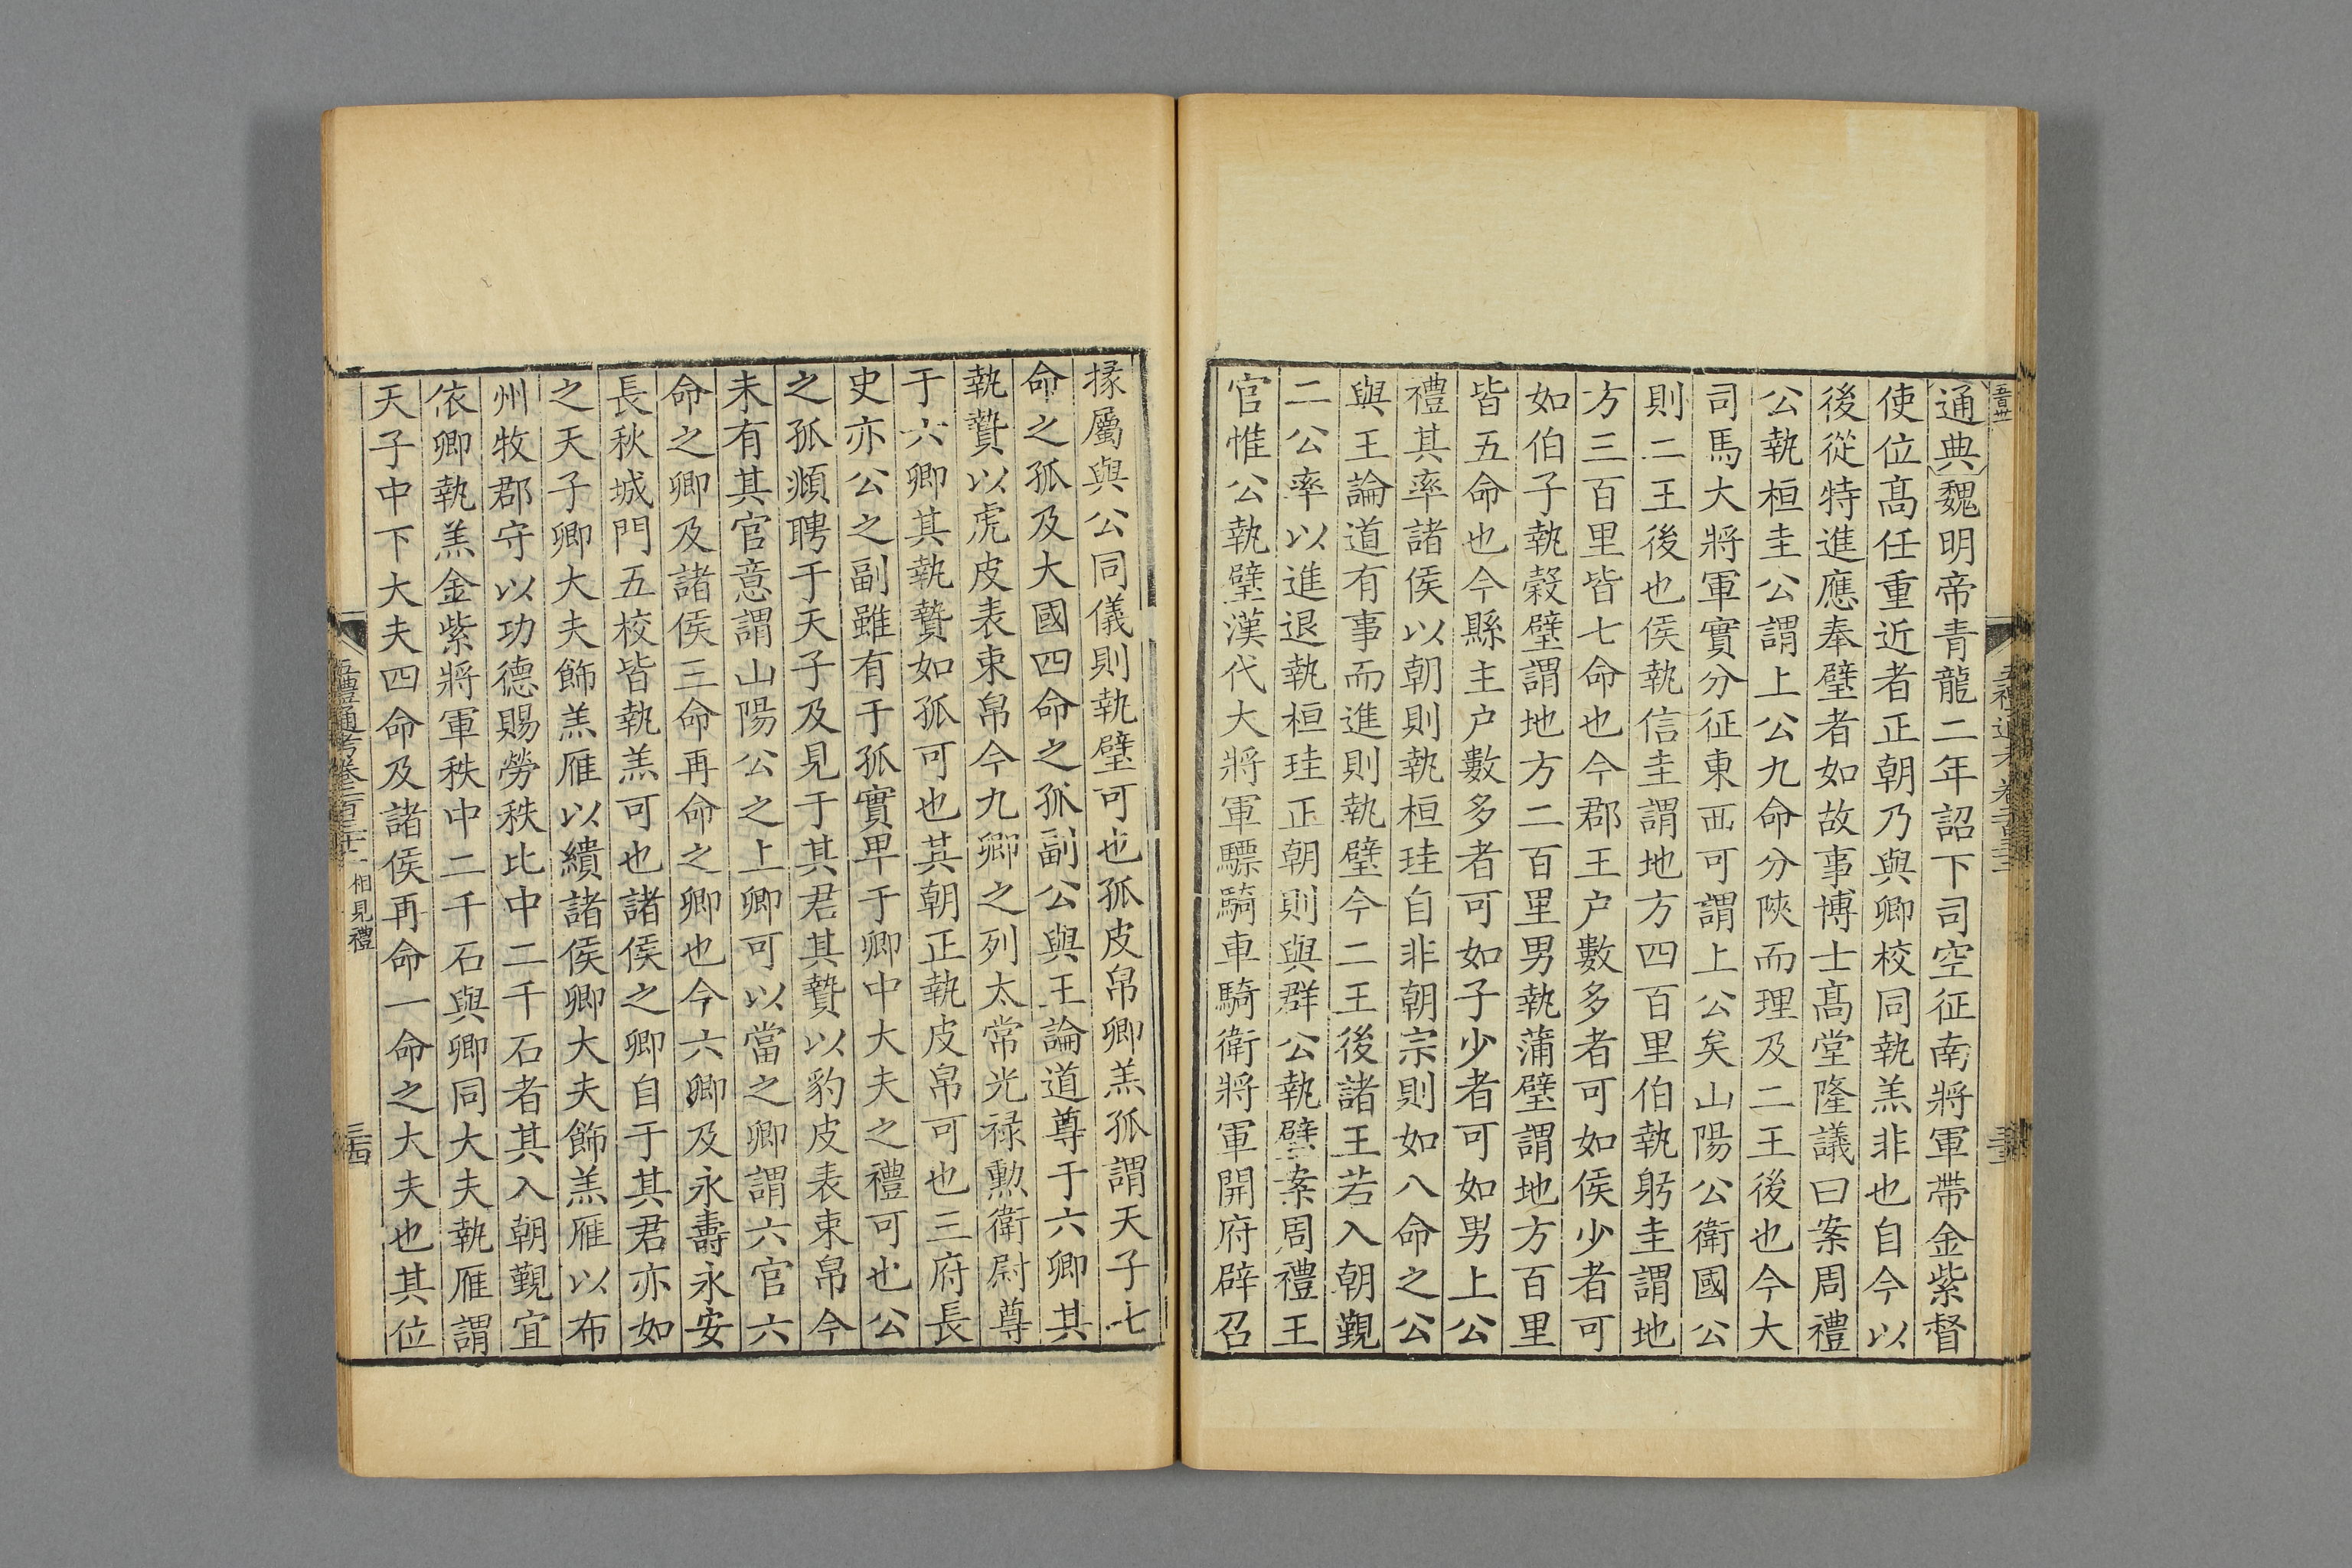 通典魏明帝青龍二年詔下司空征南將軍帶金紫督
使位髙任重近者正朝乃與卿校同執羔非也自今以
後從特進應奉璧者如故事博士髙堂隆議曰案周禮
公執桓圭公謂上公九命分陜而理及二王後也今大
司馬大將軍實分征東西可謂上公矣山陽公衛國公
則二王後也侯執信圭謂地方四百里伯執躬圭謂地
方三百里皆七命也今郡王户數多者可如侯少者可
如伯子執榖璧謂地方二百里男執蒲璧謂地方百里
皆五命也今縣主户數多者可如子少者可如男上公
禮其率諸侯以朝則執桓珪自非朝宗則如八命之公
與王論道有事而進則執璧今二王後諸王若入朝覲
二公率以進退執桓珪正朝則與群公執璧案周禮王
官惟公執璧漢代大將軍驃騎車騎衛將軍開府辟召
掾屬與公同儀則執璧可也孤皮帛卿羔孤謂天子七
命之孤及大國四命之孤副公與王論道尊于六卿其
執贄以虎皮表束帛今九卿之列太常光禄勲衛尉尊
于六卿其執贄如孤可也其朝正執皮帛可也三府長
史亦公之副雖有于孤實卑于卿中大夫之禮可也公
之孤頫聘于天子及見于其君其贄以豹皮表束帛今
未有其官意謂山陽公之上卿可以當之卿謂六官六
命之卿及諸侯三命再命之卿也今六卿及永壽永安
長秋城門五校皆執羔可也諸侯之卿自于其君亦如
之天子卿大夫飾羔雁以繢諸侯卿大夫飾羔雁以布
州牧郡守以功德賜勞秩比中二千石者其入朝覲宜
依卿執羔金紫將軍秩中二千石與卿同大夫執雁謂
天子中下大夫四命及諸侯再命一命之大夫也其位
五禮通考卷二百三十二 相見禮
三十四